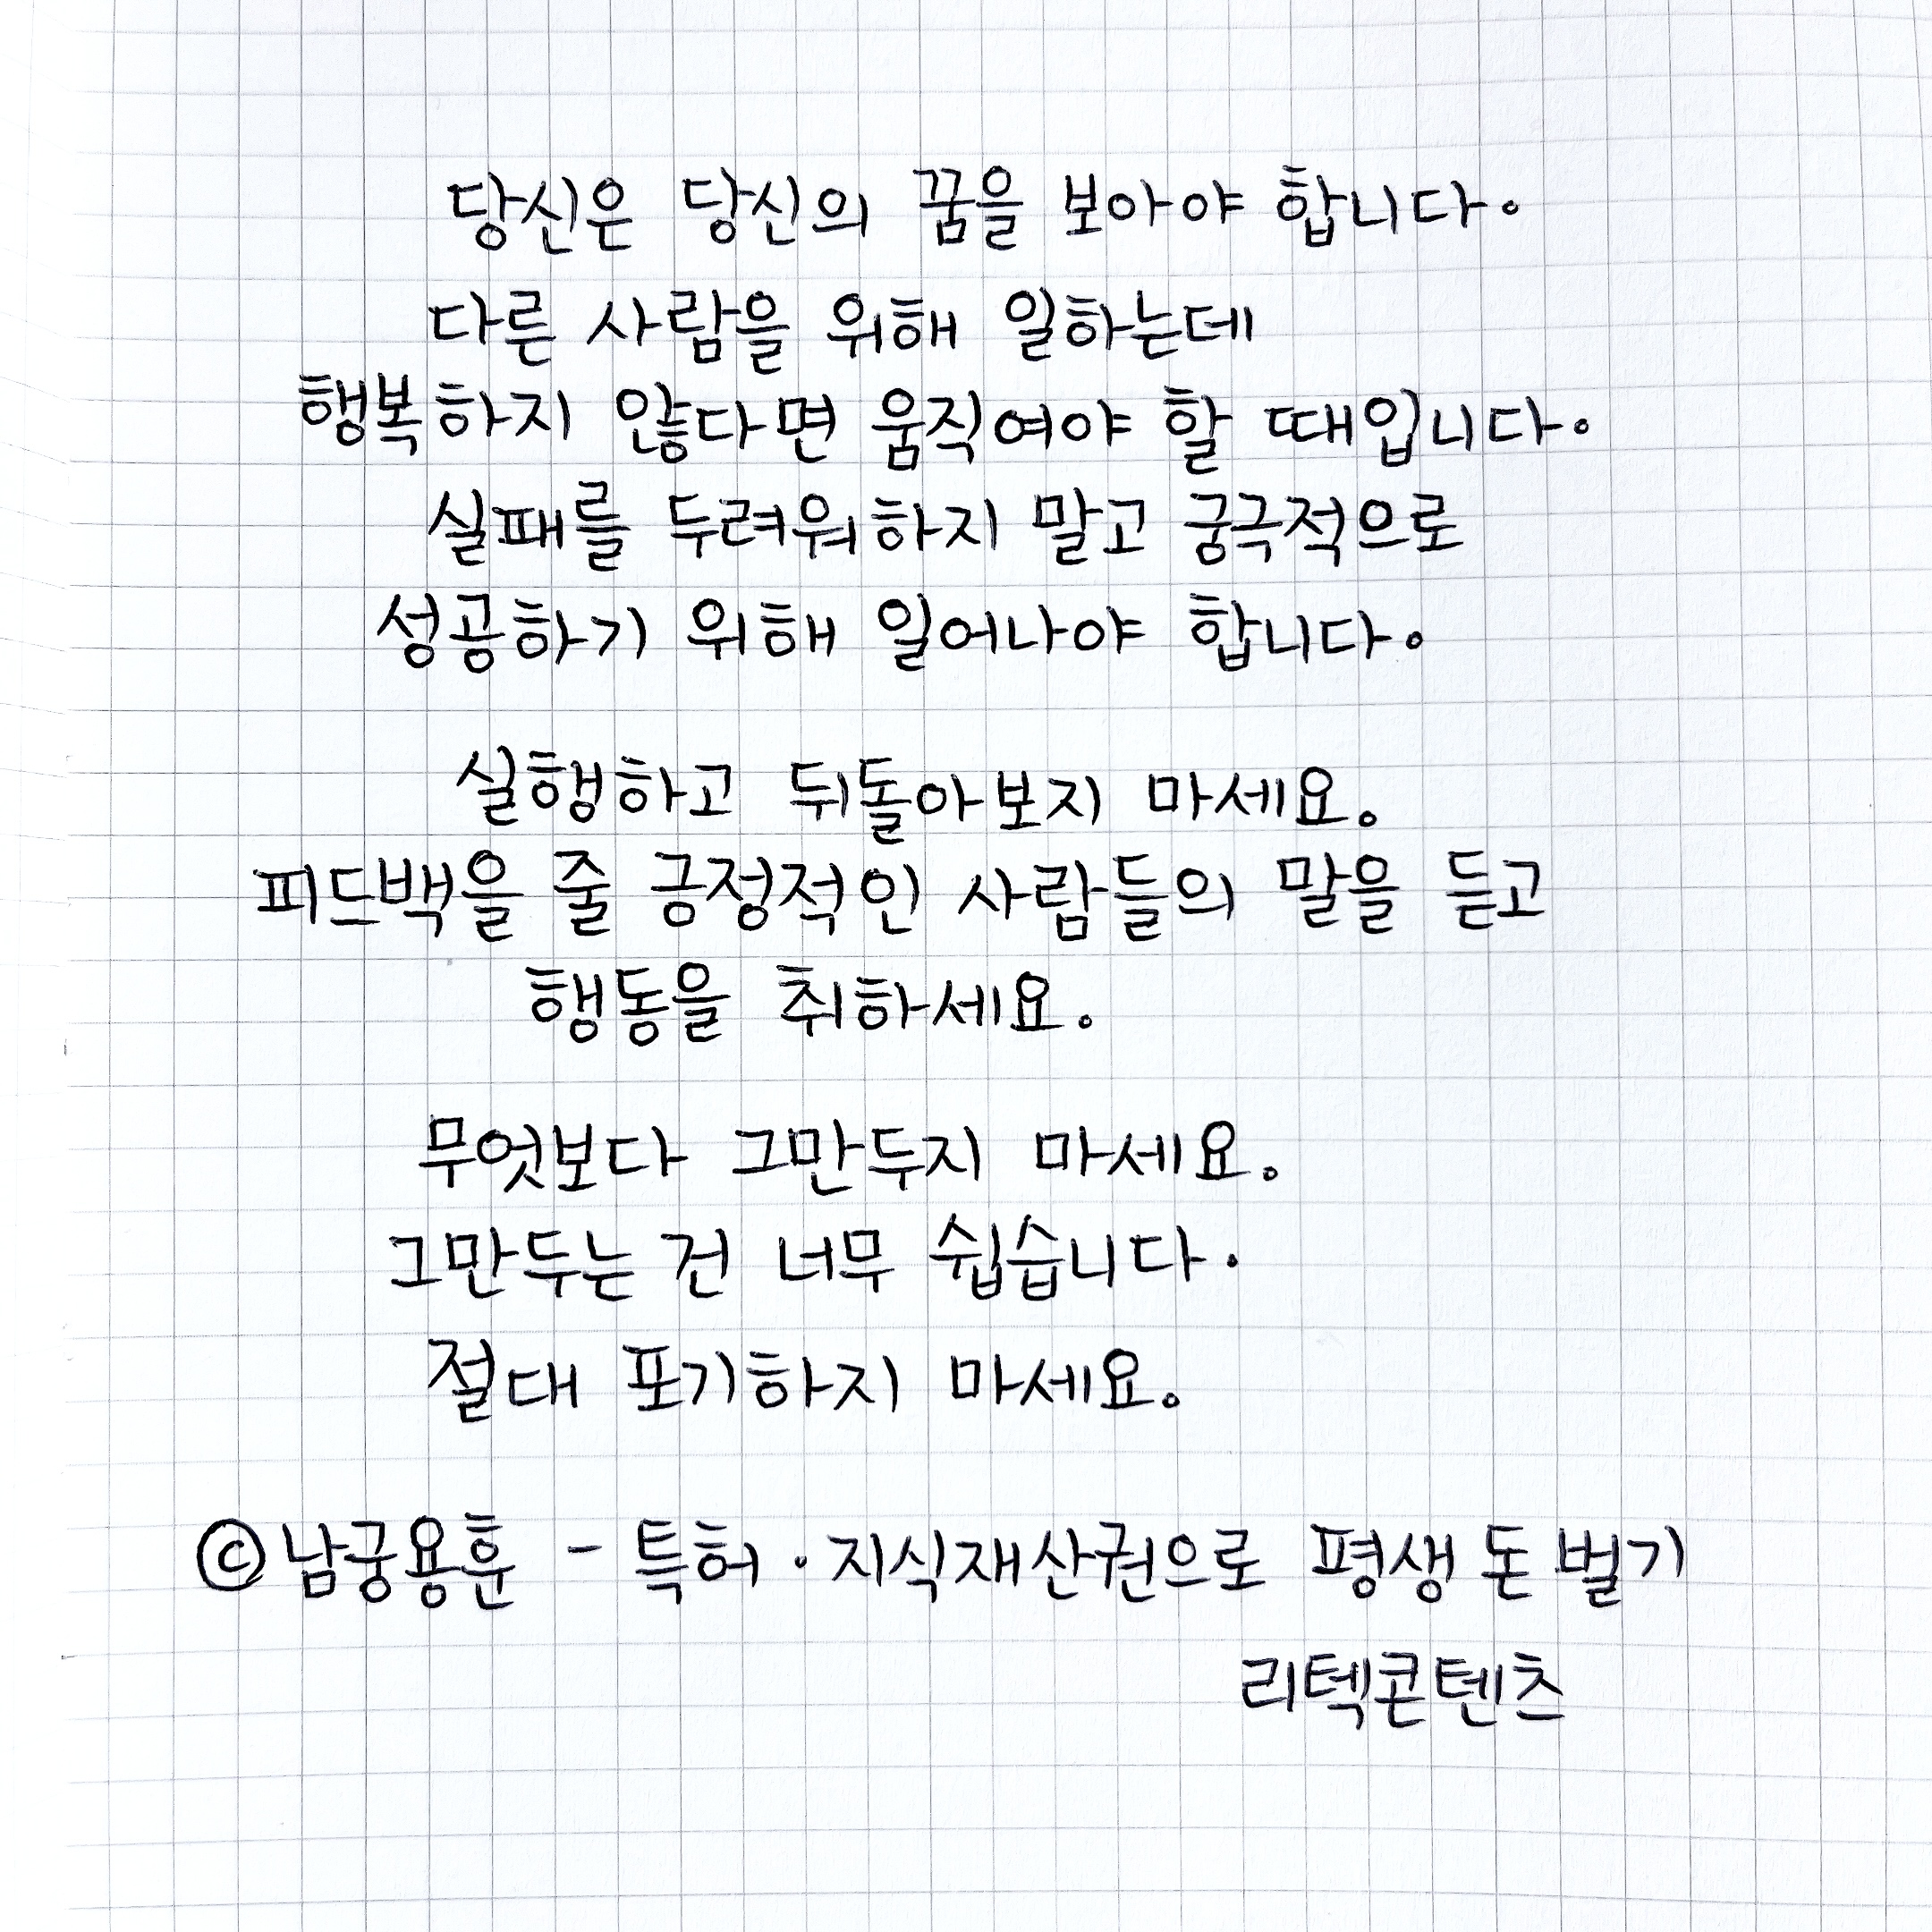 당신은 당신의 꿈을 보아야 합니다.
다른 사람을 위해 일하는데
행복하지 않다면 움직여야 할 때입니다.
실패를 두려워하지 말고 궁극적으로
성공하기 위해 일어나야 합니다.
실행하고 뒤돌아보지 마세요.
피드백을 줄 긍정적인 사람들의 말을 듣고
행동을 취하세요.
무엇보다 그만두지 마세요.
그만두는 건 너무 쉽습니다.
절대 포기하지 마세요.
ⓒ남궁용훈 - 특허·지식재산권으로 평생 돈 벌기
리텍콘텐츠